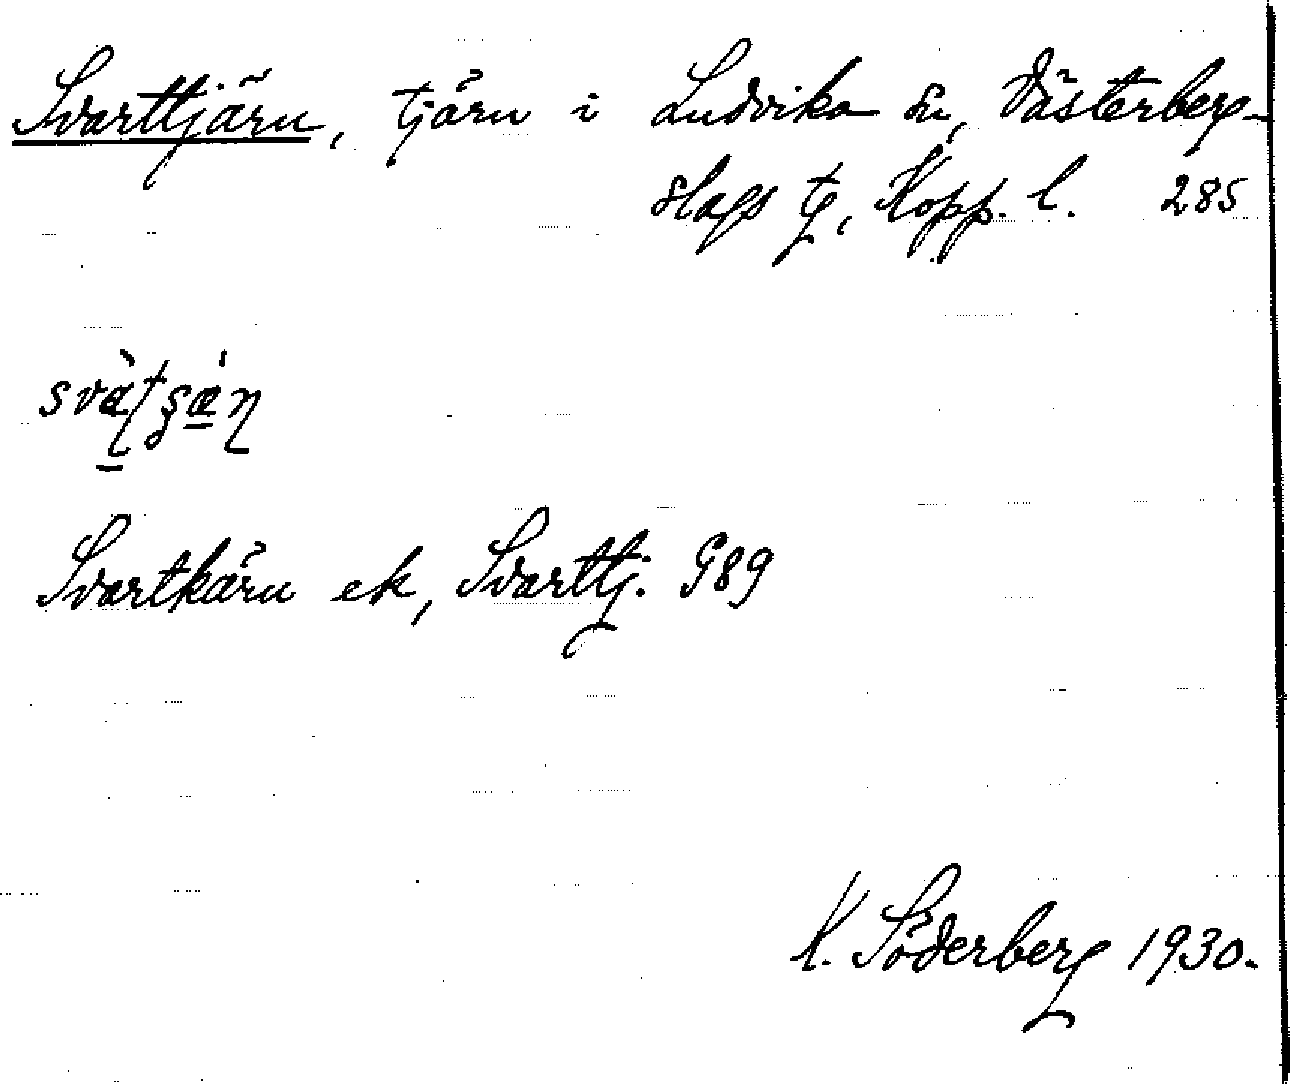 Svarttjärn, tjärn i Ludvika sn, Västerberg-
slags tg, Kopp. l. 285
Svartkärn ek, Svarttj. G89
K. Söderberg 1930.